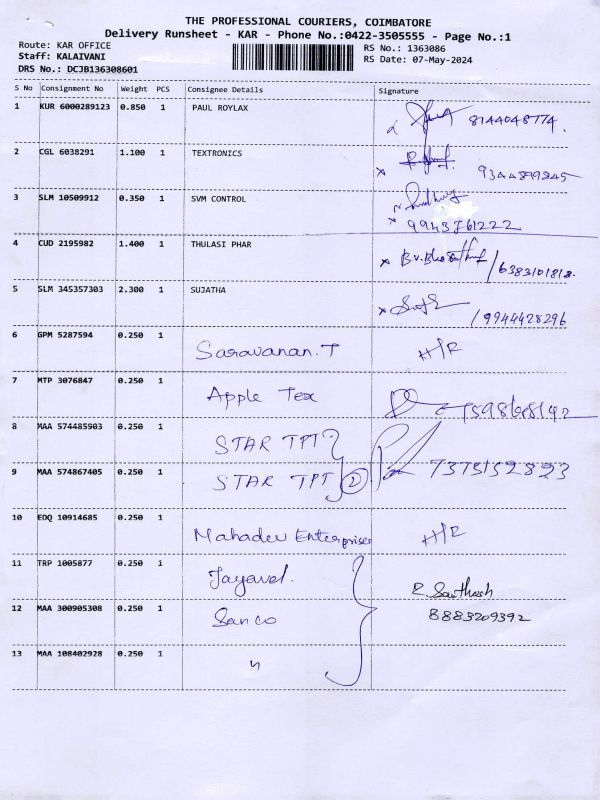 THE PROFESSIONAL COURIERS, COIMBATORE
Delivery Runsheet - KAR - Phone No.:0422-3505555 - Page No.:1
Route: KAR OFFICE RS No.: 1363086
Staff: KALAIVANI RS Date: 07-May-2024
DRS No.: DCJB136308601
S No Consignment No Weight PCS Consignee Details Signature
1 KUR 6000289123 0.850 1 PAUL ROYLAX 8144048774.
2 CGL 6038291 1.100 1 TEXTRONICS 9344899845
3 SLM 10509912 0.350 1 SVM CONTROL
9943761222
4 CUD 2195982 1.400 1 THULASI PHAR /6383101818.
5 SLM 345357303 2.300 1 SUJATHA /9944428296
6 GPM 5287594 0.250 1 Saravanan.T H/R
7 MTP 3076847 0.250 1 Apple Tex
8 MAA 574485903 0.250 1 STAR TPT
9 MAA 574867405 0.250 1 STAR TPT 2 7373152893
10 EDQ 10914685 0.250 1 Mahadev Enterprises H/R
11 TRP 1005877 0.250 1 Jayavel. R. Santhosh
12 MAA 300905308 0.250 1 Sanco 8883209392
13 MAA 108402928 0.250 1 "